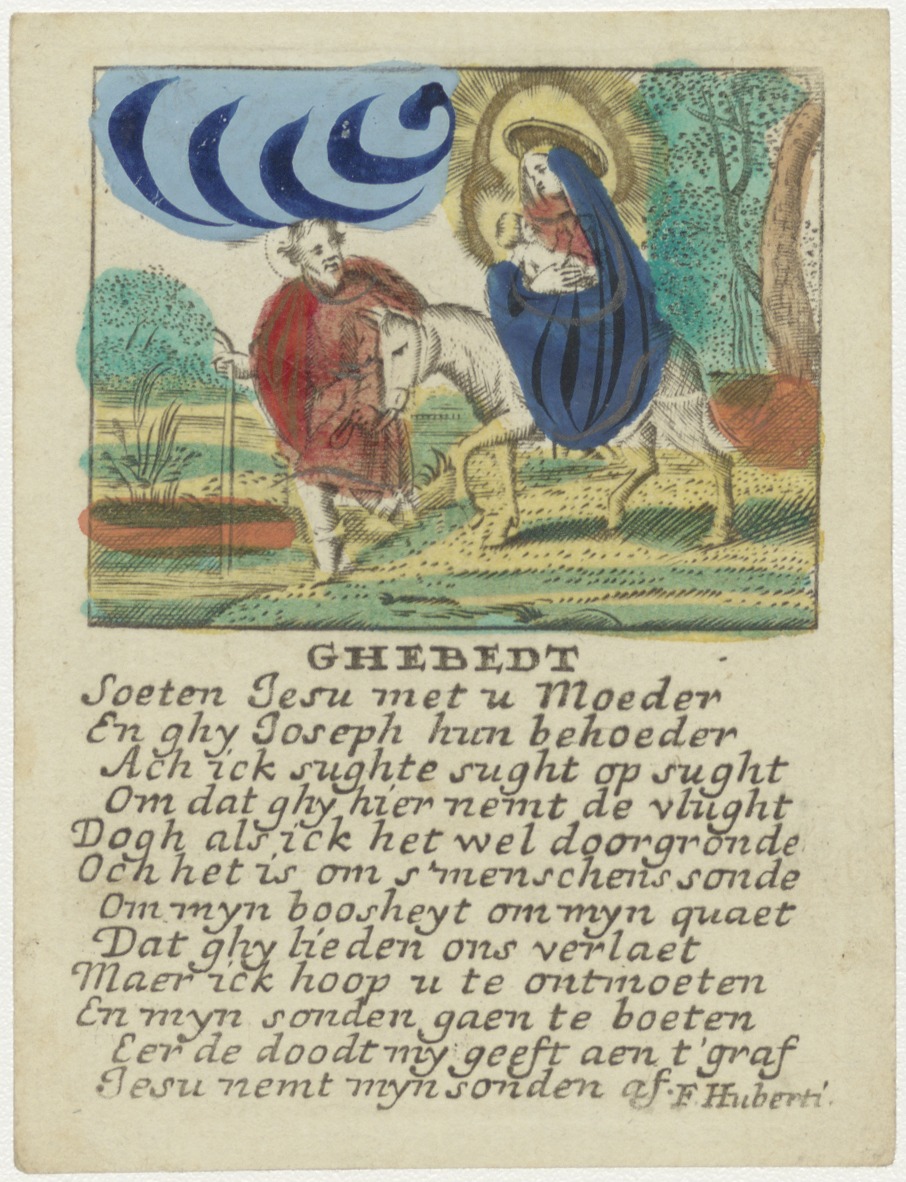 GHEBEDT
Soeten Jesu met u Moeder
En ghy Joseph hun behoeder
Ach ick sughte sught op sught
Om dat ghy hier nemt de vlught
Dogh als ick het wel doorgronde
Och het is om s'menschens sonde
Om myn boosheyt om myn quaet
Dat ghy lieden ons verlaet
Maer ick hoop u te ontmoeten
En myn sonden gaen te boeten
Eer de doodt my geeft aen t'graf
Jesu nemt myn sonden af.
F. Huberti.